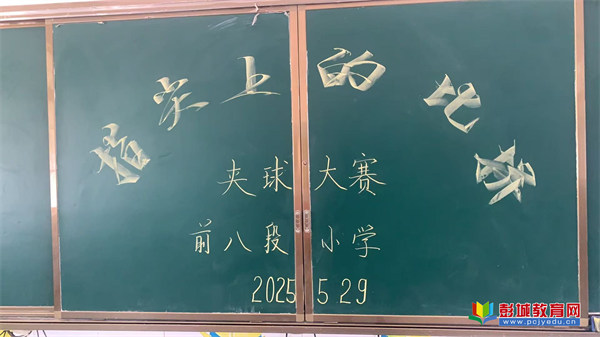 指尖上的比
夹球大赛
前八段小学
2025 5 29
彭城教育网
www.pcjyedu.cn